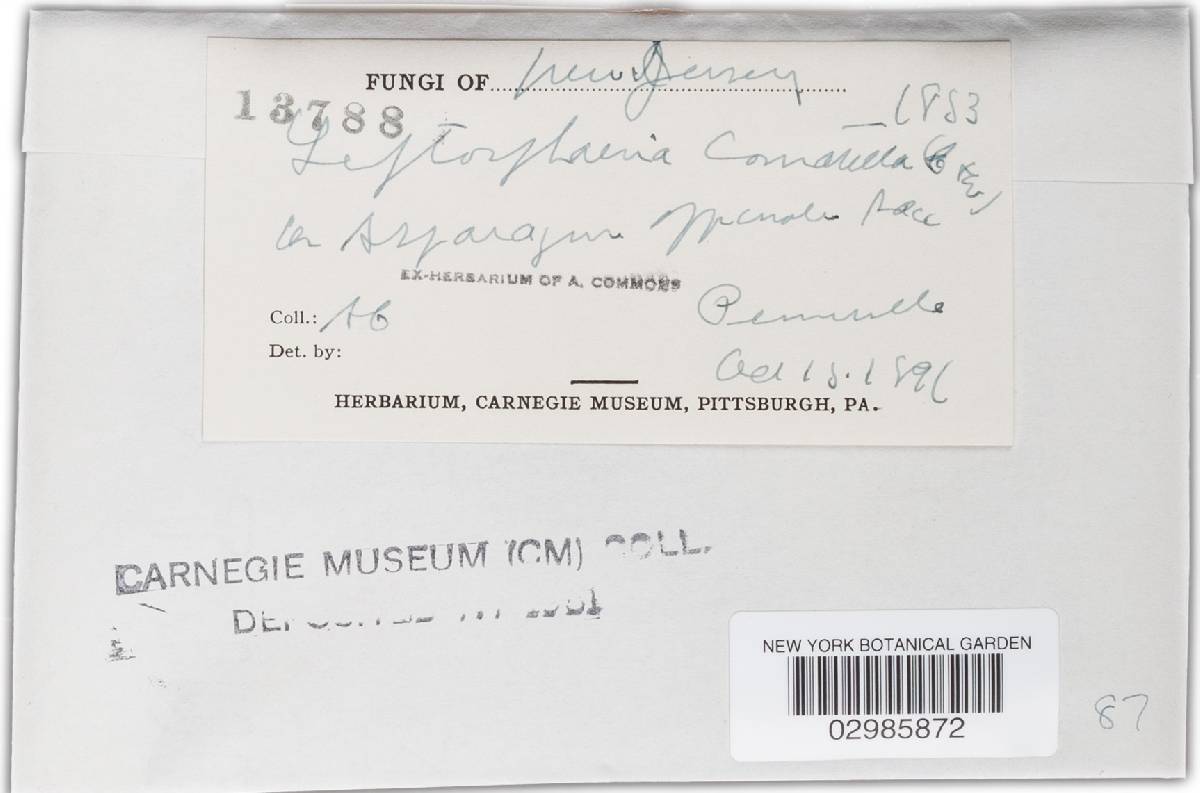 FUNGI OF New Jersey
13788
1883
Leptosphaeria Comatella C & E
on Asparagus
EX-HERBARIUM OF A. COMMONS
Coll.: AC
Det. by:
Oct 15. 189
HERBARIUM, CARNEGIE MUSEUM, PITTSBURGH, PA.
CARNEGIE MUSEUM (CM) COLL.
NEW YORK BOTANICAL GARDEN
02985872
87